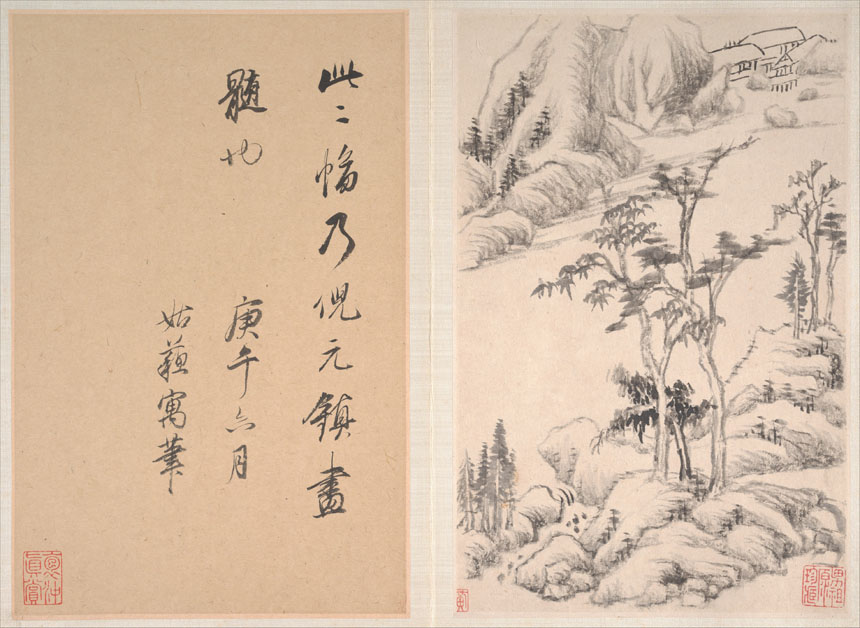 此二幅乃倪元鎮畫
髓也 庚午六月
姑蘓寓筆